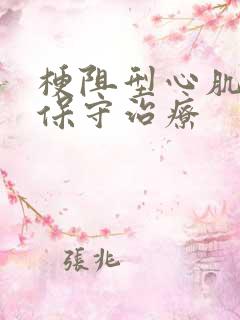 梗阻型心肌
保守治療
張兆